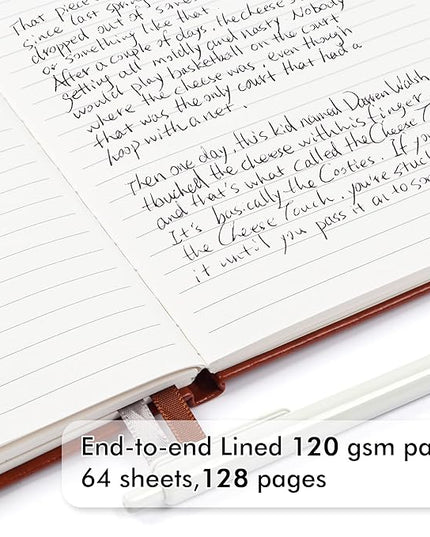 That piece
since last spring
dropped out of some
or something like that
After a couple of days, the cheese s
getting all moldly and nasty Nobody
would play basketball on the court
where the cheese was, even though
that was the only court that had a
hoop with a net.
Then one day, this kid named Darren Walsh
touched the cheese with his finger
and that's what called the Cheese T
It's basically the Cooties. If you
the Cheese Touch, you're stuck
it until you pass it on to so
End-to-end Lined 120 gsm pa
64 sheets,128 pages